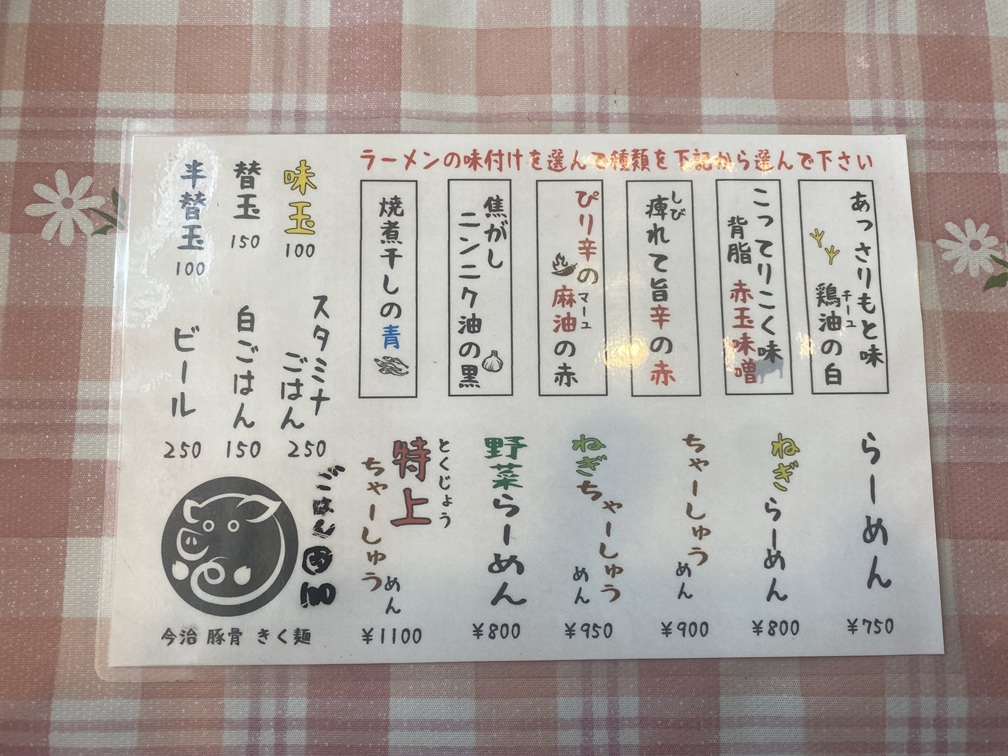 ラーメンの味付けを選んで種類を下記から選んで下さい
あっさりもと味
鶏油の白
チーユ
こってりこく味
背脂 赤玉味噌
しび
痺れて旨辛の赤
ぴり辛の
麻油の赤
マーユ
焦がし
ニンニク油の黒
焼煮干しの青
らーめん
¥750
ねぎ
らーめん
¥800
ちゃーしゅう
めん
¥900
ねぎちゃーしゅう
めん
¥950
野菜らーめん
¥800
とくじょう
特上
ちゃーしゅう
めん
¥1100
味玉
100
替玉
150
半替玉
100
スタミナ
ごはん
250
白ごはん
150
ビール
250
ごはん
100
今治 豚骨 きく麺